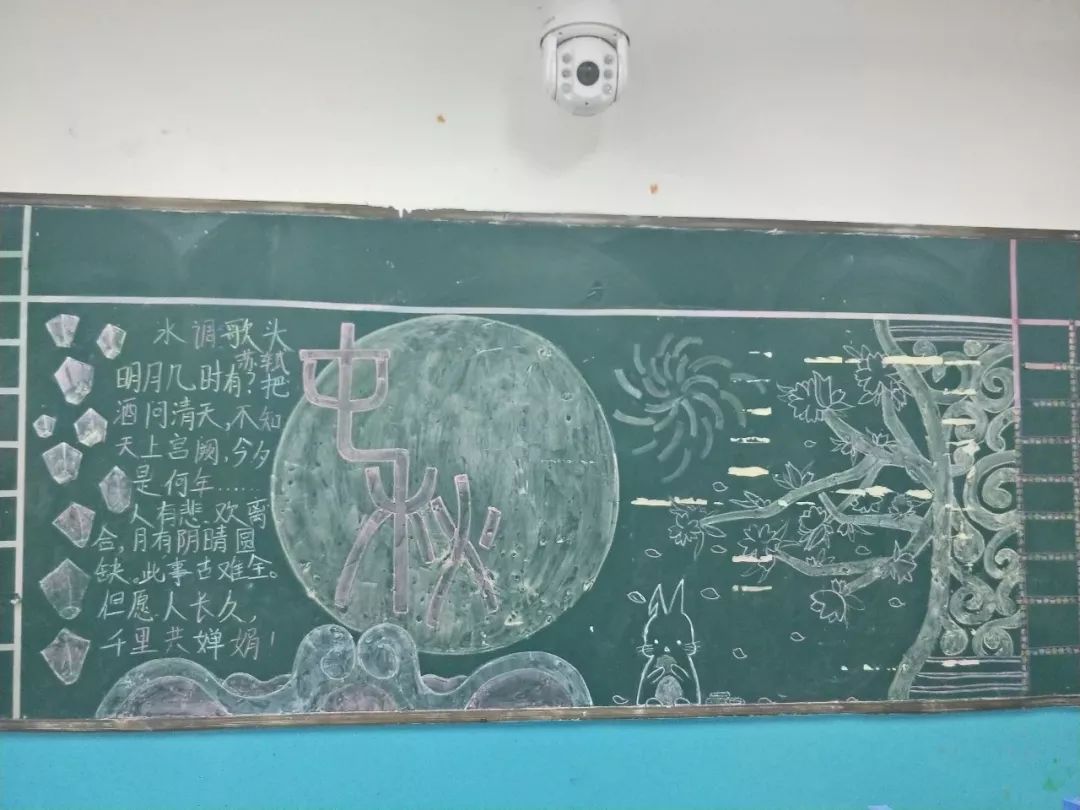 水调歌头
苏轼
明月几时有?把
酒问清天,不知
天上宫阙,今夕
是何年……
人有悲.欢离
合,月有阴晴圆
缺。此事古难全。
但愿人长久,
千里共婵娟!
中秋